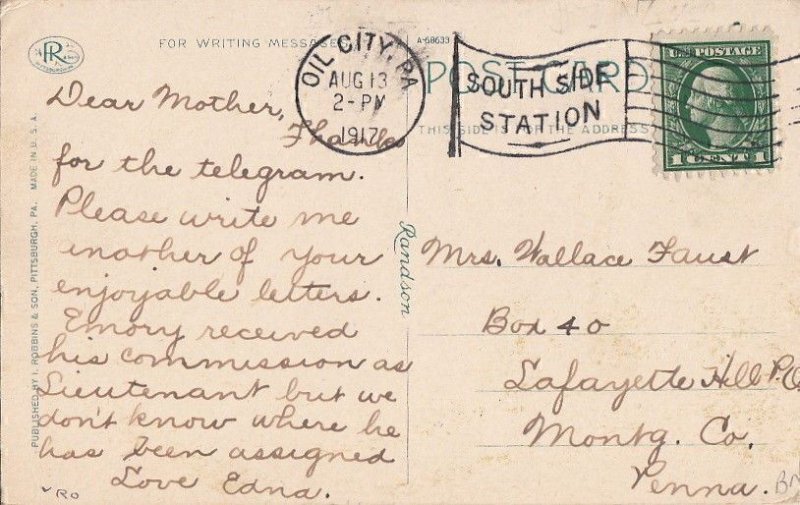 RR
PITTSBURGH, PA.
FOR WRITING MESSAGES
A-68633
POST CARD
THIS SIDE IS FOR THE ADDRESS
OIL CITY, PA
AUG 13
2-PM
1917
SOUTH SIDE
STATION
U.S. POSTAGE
1 CENT 1
MADE IN U.S.A.
PUBLISHED BY I. ROBBINS & SON, PITTSBURGH, PA.
Dear Mother,
Thanks
for the telegram.
Please write me
another of your
enjoyable letters.
Emory received
his commission as
Lieutenant but we
don't know where he
has been assigned
Love Edna.
Randson
Mrs. Wallace Faust
Box 40
Lafayette Hill P.O.
Montg. Co.
Penna.